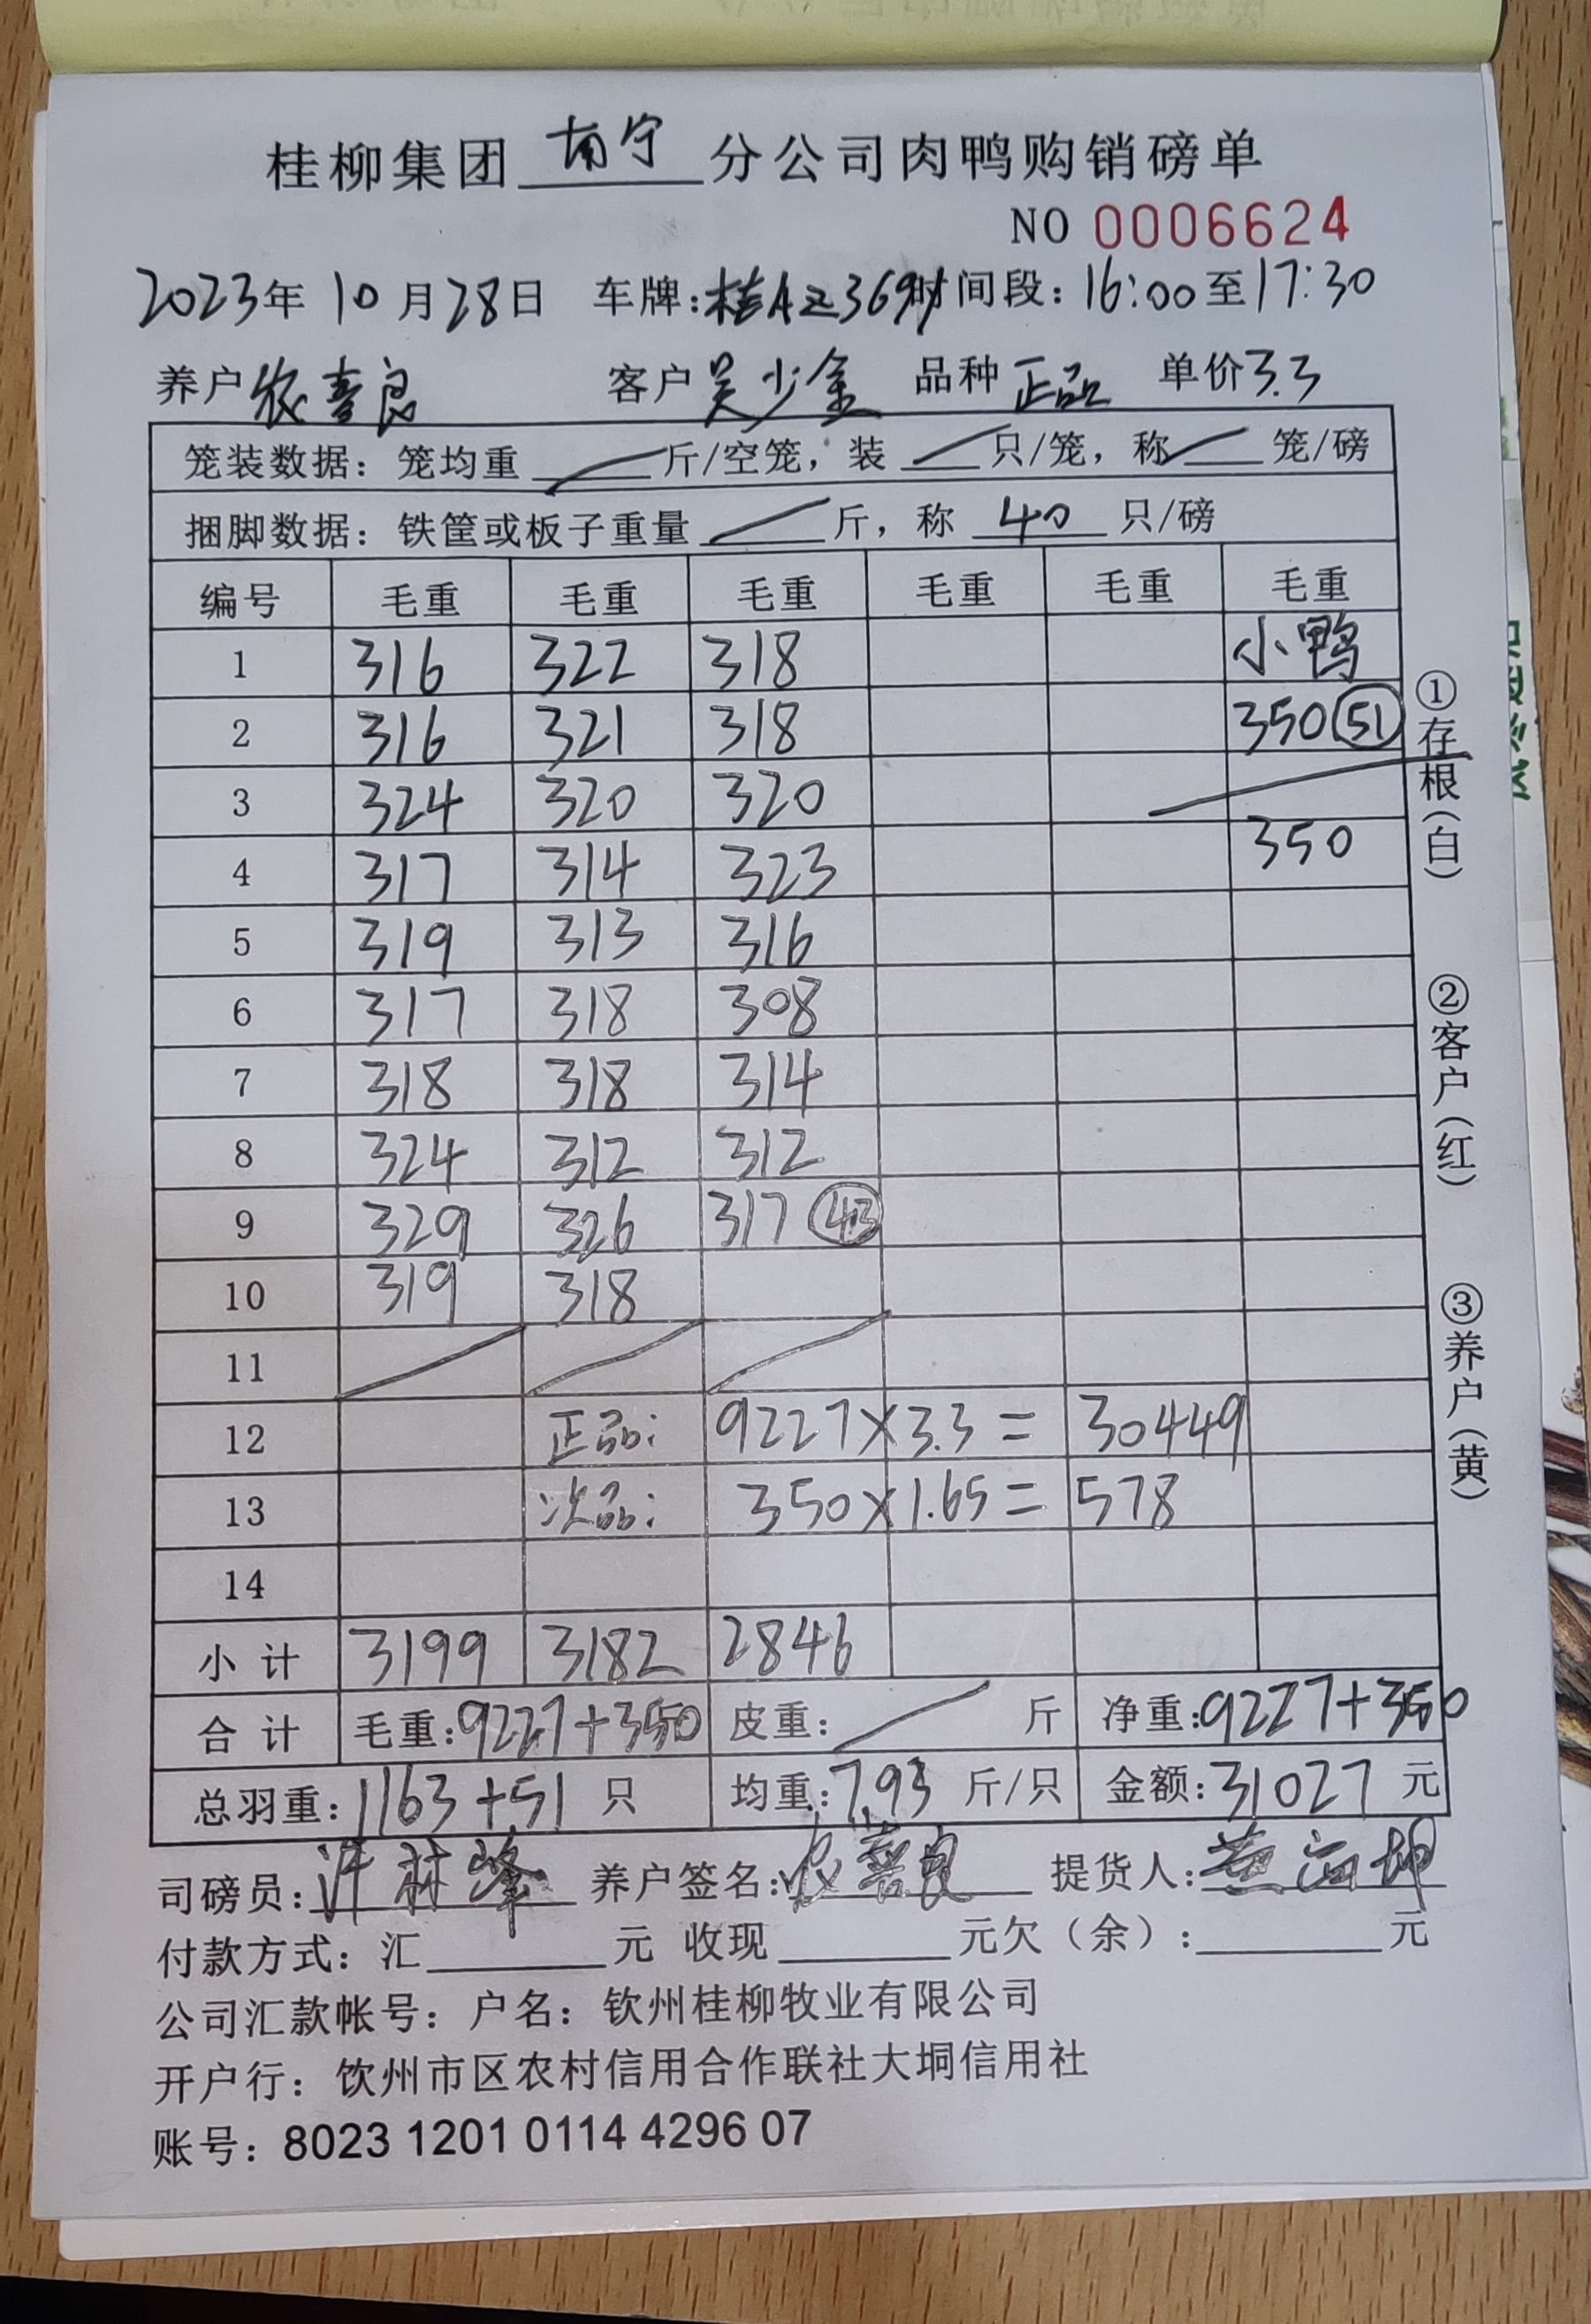 桂柳集团 南宁 分公司肉鸭购销磅单
NO 0006624
2023年 10月28日 车牌:桂A 时间段:16:00至17:30
养户 农喜良 客户 吴少金 品种 正品 单价3.3
笼装数据：笼均重 斤/空笼，装 只/笼，称 笼/磅
捆脚数据：铁筐或板子重量 斤，称 40 只/磅
编号 毛重 毛重 毛重 毛重 毛重 毛重
1 316 322 318 小鸭
2 316 321 318 350 51
3 324 320 320
4 317 314 323 350
5 319 313 316
6 317 318 308
7 318 318 314
8 324 312 312
9 329 326 317 43
10 319 318
11
12 正品: 9227×3.3= 30449
13 次品: 350×1.65= 578
14
小计 3199 3182 2846
合计 毛重:9227+350 皮重: 斤 净重:9227+350
总羽重:1163+51 只 均重:7.93 斤/只 金额:31027 元
司磅员:许林峰 养户签名:农喜良 提货人:
付款方式：汇 元 收现 元欠（余）: 元
公司汇款帐号：户名：钦州桂柳牧业有限公司
开户行：钦州市区农村信用合作联社大垌信用社
账号：8023 1201 0114 4296 07
①存根（白）
②客户（红）
③养户（黄）